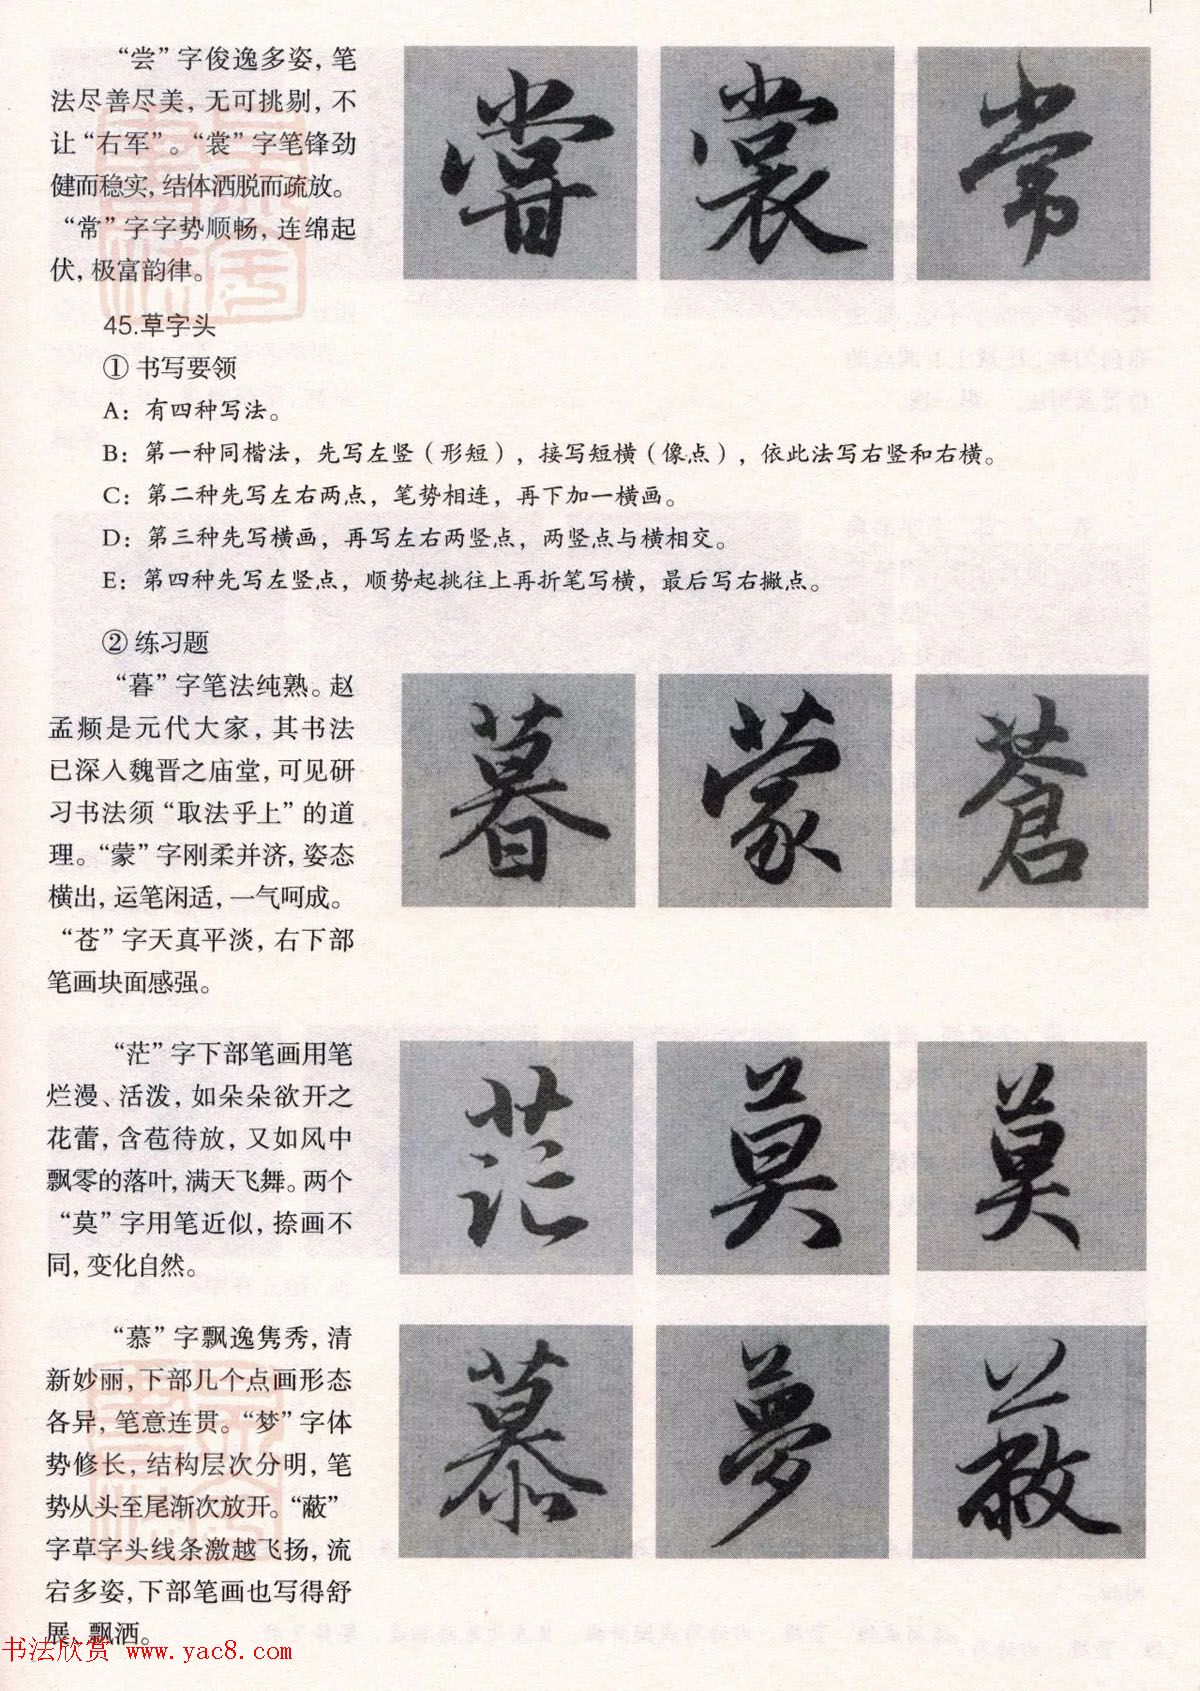 “尝”字俊逸多姿，笔
法尽善尽美，无可挑剔，不
让“右军”。“裳”字笔锋劲
健而稳实，结体洒脱而疏放。
“常”字字势顺畅，连绵起
伏，极富韵律。
嘗 裳 常
45.草字头
① 书写要领
A：有四种写法。
B：第一种同楷法，先写左竖（形短），接写短横（像点），依此法写右竖和右横。
C：第二种先写左右两点，笔势相连，再下加一横画。
D：第三种先写横画，再写左右两竖点，两竖点与横相交。
E：第四种先写左竖点，顺势起挑往上再折笔写横，最后写右撇点。
② 练习题
“暮”字笔法纯熟。赵
孟頫是元代大家，其书法
已深入魏晋之庙堂，可见研
习书法须“取法乎上”的道
理。“蒙”字刚柔并济，姿态
横出，运笔闲适，一气呵成。
“苍”字天真平淡，右下部
笔画块面感强。
暮 蒙 蒼
“茫”字下部笔画用笔
烂漫、活泼，如朵朵欲开之
花蕾，含苞待放，又如风中
飘零的落叶，满天飞舞。两个
“莫”字用笔近似，捺画不
同，变化自然。
茫 莫 莫
“慕”字飘逸隽秀，清
新妙丽，下部几个点画形态
各异，笔意连贯。“梦”字体
势修长，结构层次分明，笔
势从头至尾渐次放开。“蔽”
字草字头线条激越飞扬，流
宕多姿，下部笔画也写得舒
展、飘洒。
慕 夢 蔽
书法欣赏 www.yac8.com